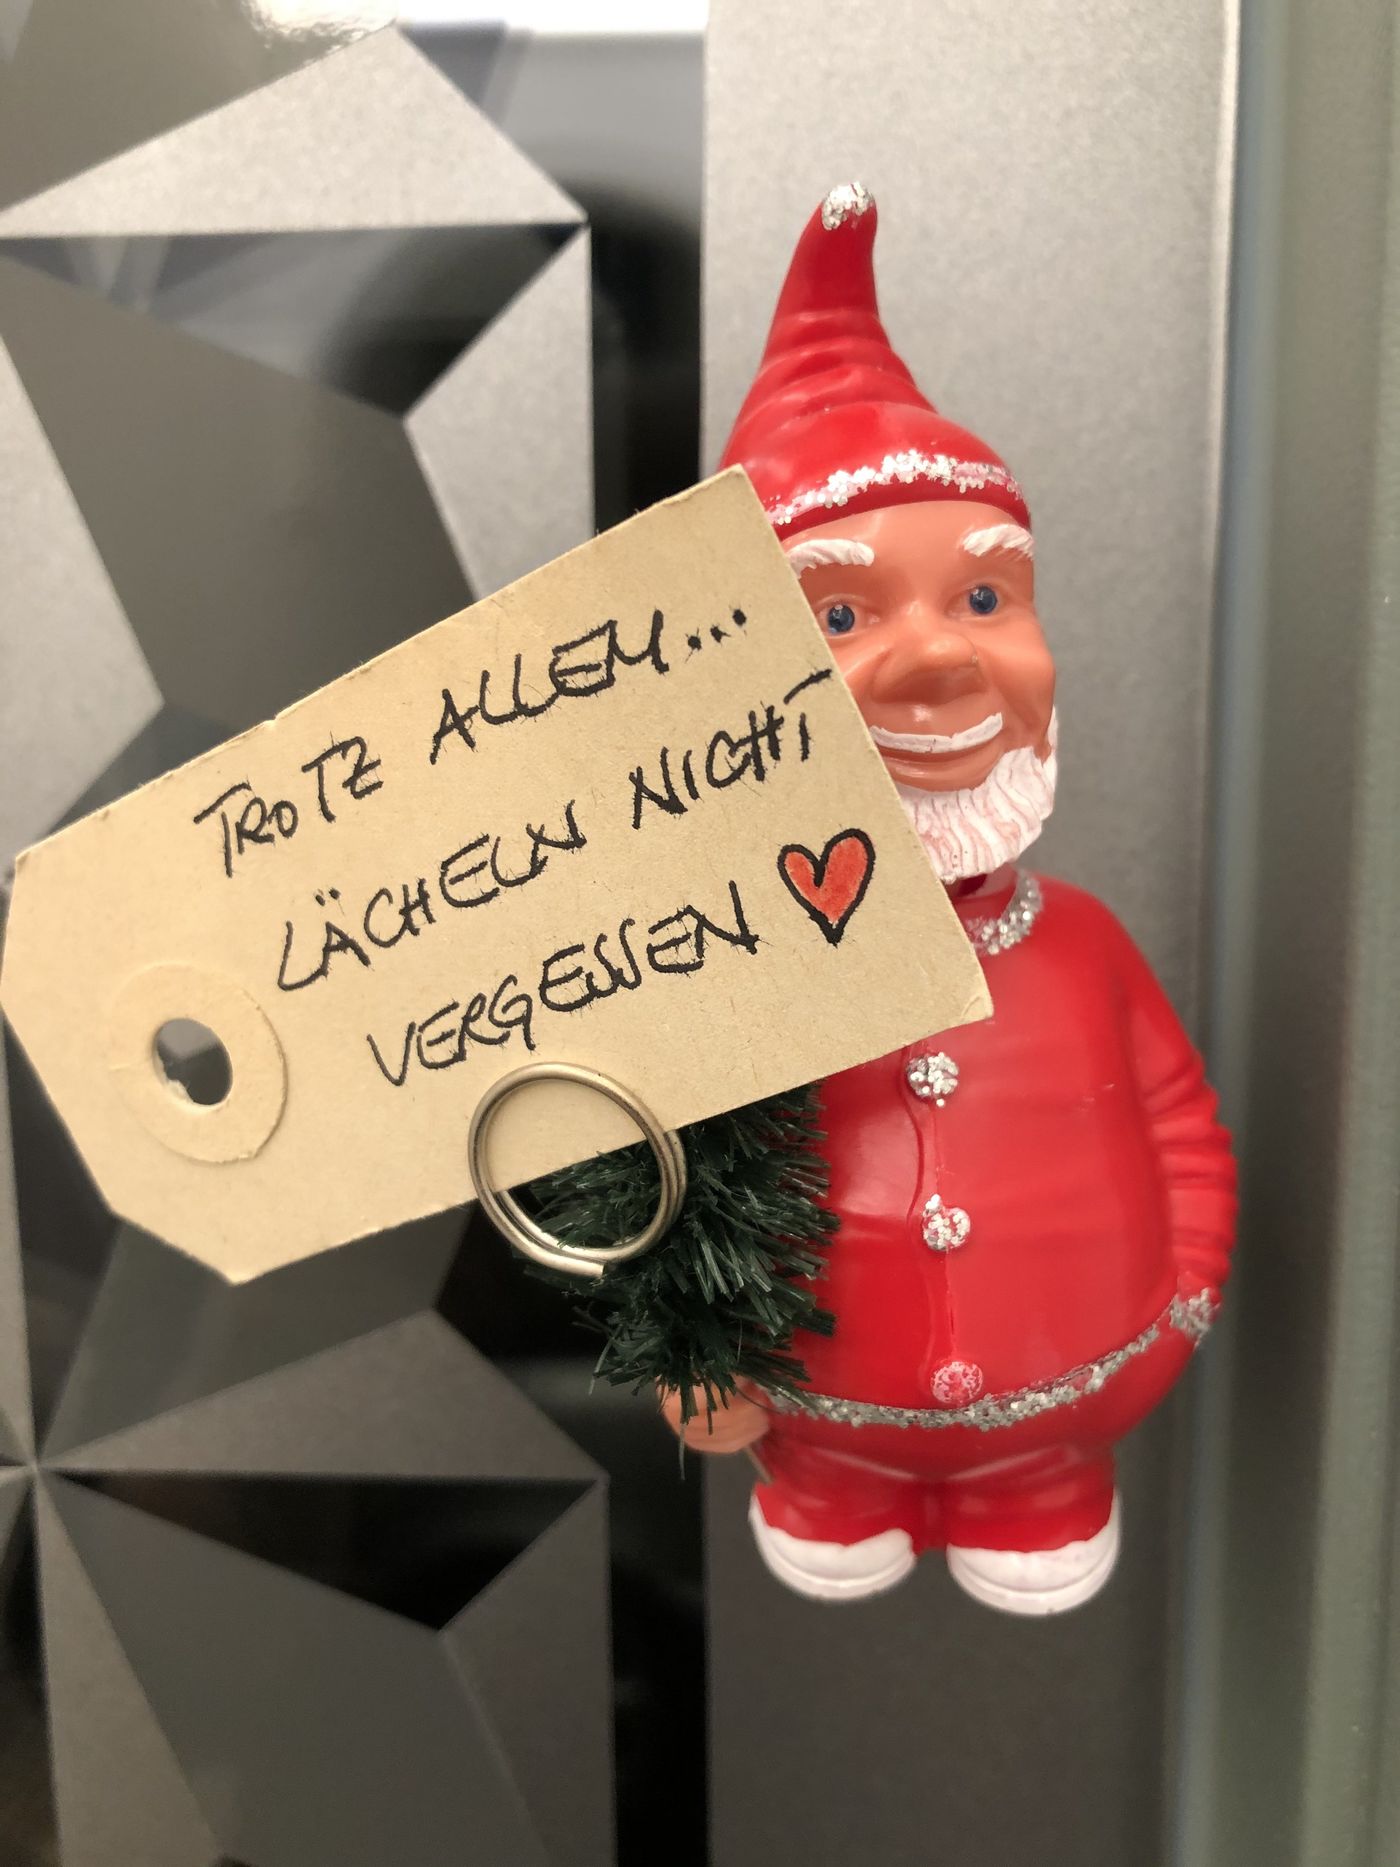 TROTZ ALLEM...
LÄCHELN NICHT
VERGESSEN